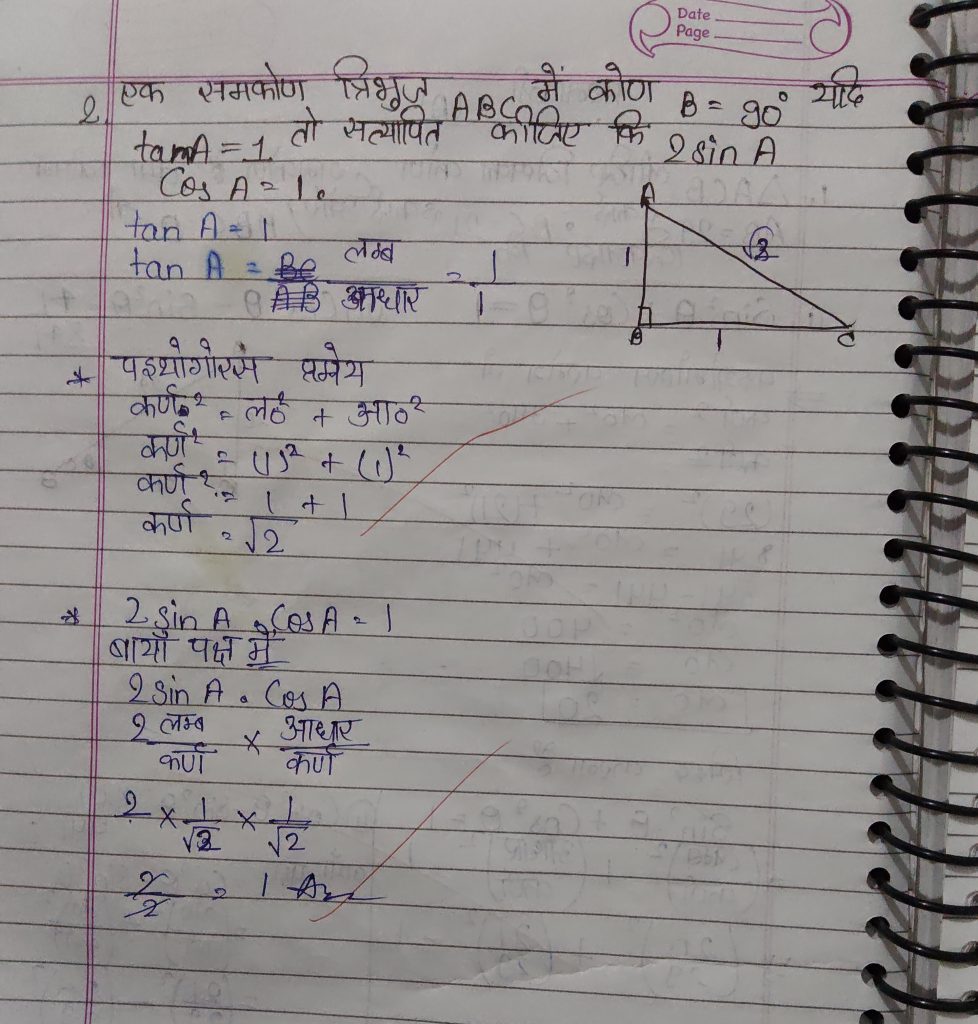 Date
Page
2 एक समकोण त्रिभुज ABC में कोण B = 90° यदि
tanA = 1 तो सत्यापित कीजिए कि 2 sin A
Cos A = 1.
tan A = 1
tan A = लम्ब / आधार = 1 / 1
A
1
√2
B
1
C
* पइथोगोरस प्रमेय
कर्ण² = ल०² + आ०²
कर्ण² = (1)² + (1)²
कर्ण² = 1 + 1
कर्ण = √2
* 2 sin A . Cos A = 1
बायाँ पक्ष में
2 sin A . Cos A
2 लम्ब / कर्ण × आधार / कर्ण
2 × 1 / √2 × 1 / √2
2 / 2 = 1 Ans